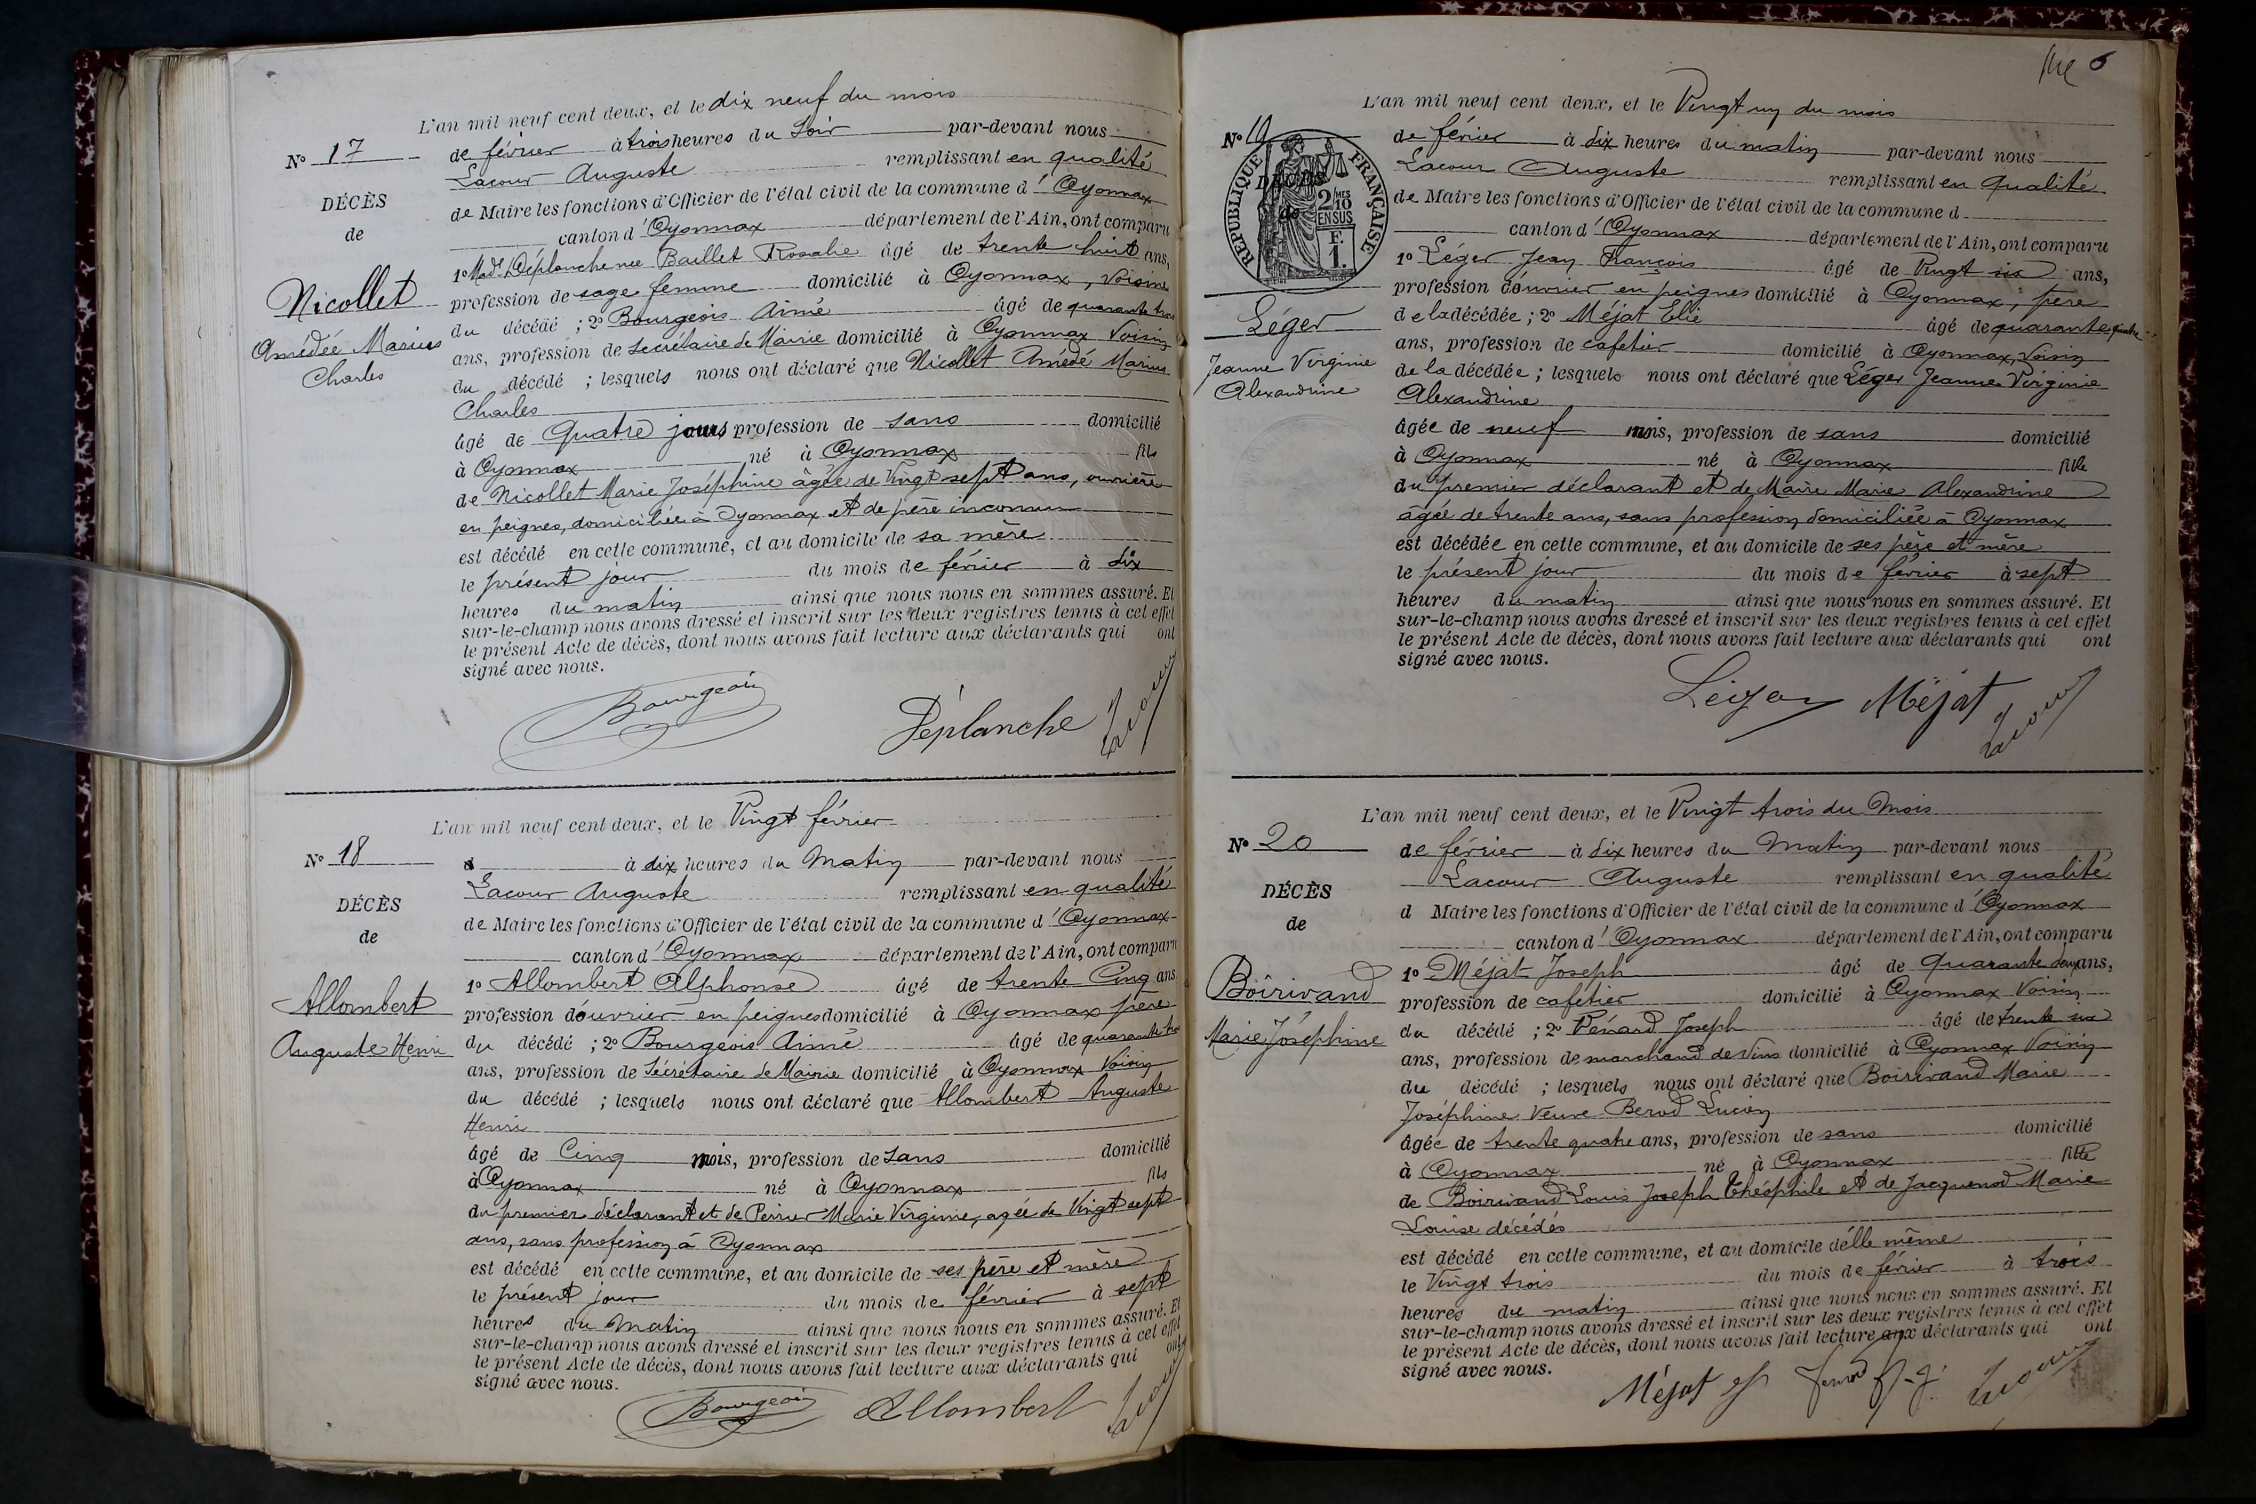 L'an mil neuf cent deux, et le dix neuf du mois
N° 17
de février à trois heures du Soir par-devant nous
Lacour Auguste remplissant en qualité
DÉCÈS
de Maire les fonctions d'Officier de l'état civil de la commune d' Oyonnax
de
canton d' Oyonnax département de l'Ain, ont comparu
1° Made Déplanche née Baillet Rosalie âgé de trente huit ans,
Nicollet
profession de sage femme domicilié à Oyonnax, voisine
du décédé ; 2° Bourgeois Aimé âgé de quarante trois
Amédée Marius
Charles
ans, profession de Secrétaire de Mairie domicilié à Oyonnax Voisin
du décédé ; lesquels nous ont déclaré que Nicollet Amédé Marius
Charles
âgé de quatre jours profession de sans domicilié
à Oyonnax né à Oyonnax fils
de Nicollet Marie Joséphine âgée de Vingt sept ans, ouvrière
en peignes, domiciliée à Oyonnax et de père inconnu
est décédé en cette commune, et au domicile de sa mère
le présent jour du mois de février à dix
heures du matin ainsi que nous nous en sommes assuré. Et
sur-le-champ nous avons dressé et inscrit sur les deux registres tenus à cet effet
le présent Acte de décès, dont nous avons fait lecture aux déclarants qui ont
signé avec nous.
Bourgeois Déplanche Lacour
L'an mil neuf cent deux, et le Vingt février
N° 18
d à dix heures du Matin par-devant nous
Lacour Auguste remplissant en qualité
DÉCÈS
de Maire les fonctions d'Officier de l'état civil de la commune d' Oyonnax
de
canton d' Oyonnax département de l'Ain, ont comparu
1° Allombert Alphonse âgé de trente Cinq ans
Allombert
profession d'ouvrier en peignes domicilié à Oyonnax père
Auguste Henri
du décédé ; 2° Bourgeois Aimé âgé de quarante trois
ans, profession de Sécrétaire de Mairie domicilié à Oyonnax Voisin
du décédé ; lesquels nous ont déclaré que Allombert Auguste
Henri
âgé de Cinq mois, profession de Sans domicilié
à Oyonnax né à Oyonnax fils
du premier déclarant et de Perrier Marie Virginie, agée de Vingt sept
ans, sans profession à Oyonnax
est décédé en cette commune, et au domicile de ses père et mère
le présent jour du mois de février à sept
heures du Matin ainsi que nous nous en sommes assuré. Et
sur-le-champ nous avons dressé et inscrit sur les deux registres tenus à cet effet
le présent Acte de décès, dont nous avons fait lecture aux déclarants qui ont
signé avec nous.
Bourgeois Allombert Lacour
6
L'an mil neuf cent deux, et le Vingt un du mois
N° 19
RÉPUBLIQUE FRANÇAISE
2/10 MES
EN SUS
F.
1.
de février à dix heures du matin par-devant nous
Lacour Auguste remplissant en qualité
DÉCÈS
de Maire les fonctions d'Officier de l'état civil de la commune d
de
canton d' Oyonnax département de l'Ain, ont comparu
1° Léger Jean François âgé de Vingt six ans,
profession d'ouvrier en peignes domicilié à Oyonnax, père
Léger
de la décédée ; 2° Méjat Elie âgé de quarante quatre
ans, profession de cafetier domicilié à Oyonnax, Voisin
Jeanne Virginie
Alexandrine
de la décédée ; lesquels nous ont déclaré que Léger Jeanne Virginie
Alexandrine
âgée de neuf mois, profession de sans domicilié
à Oyonnax né à Oyonnax fille
du premier déclarant et de Maire Marie Alexandrine
âgée de trente ans, sans profession domiciliée à Oyonnax
est décédée en cette commune, et au domicile de ses père et mère
le présent jour du mois de février à sept
heures du matin ainsi que nous nous en sommes assuré. Et
sur-le-champ nous avons dressé et inscrit sur les deux registres tenus à cet effet
le présent Acte de décès, dont nous avons fait lecture aux déclarants qui ont
signé avec nous.
Méjat Lacour
L'an mil neuf cent deux, et le Vingt trois du Mois
N° 20
de février à dix heures du Matin par-devant nous
Lacour Auguste remplissant en qualité
DÉCÈS
d Maire les fonctions d'Officier de l'état civil de la commune d' Oyonnax
de
canton d' Oyonnax département de l'Ain, ont comparu
1° Méjat Joseph âgé de Quarante deux ans,
Boirivand
profession de cafetier domicilié à Oyonnax Voisin
Marie Joséphine
du décédé ; 2° Joseph âgé de trente six
ans, profession de marchand de Vins domicilié à Oyonnax Voisin
du décédé ; lesquels nous ont déclaré que Boirivand Marie
Joséphine Veuve Berod Lucien
âgée de trente quatre ans, profession de sans domicilié
à Oyonnax né à Oyonnax fille
de Boirivand Louis Joseph Théophile et de Jacquenod Marie
Louise décédés
est décédé en cette commune, et au domicile d'elle même
le Vingt trois du mois de février à trois
heures du matin ainsi que nous nous en sommes assuré. Et
sur-le-champ nous avons dressé et inscrit sur les deux registres tenus à cet effet
le présent Acte de décès, dont nous avons fait lecture aux déclarants qui ont
signé avec nous.
Méjat Lacour